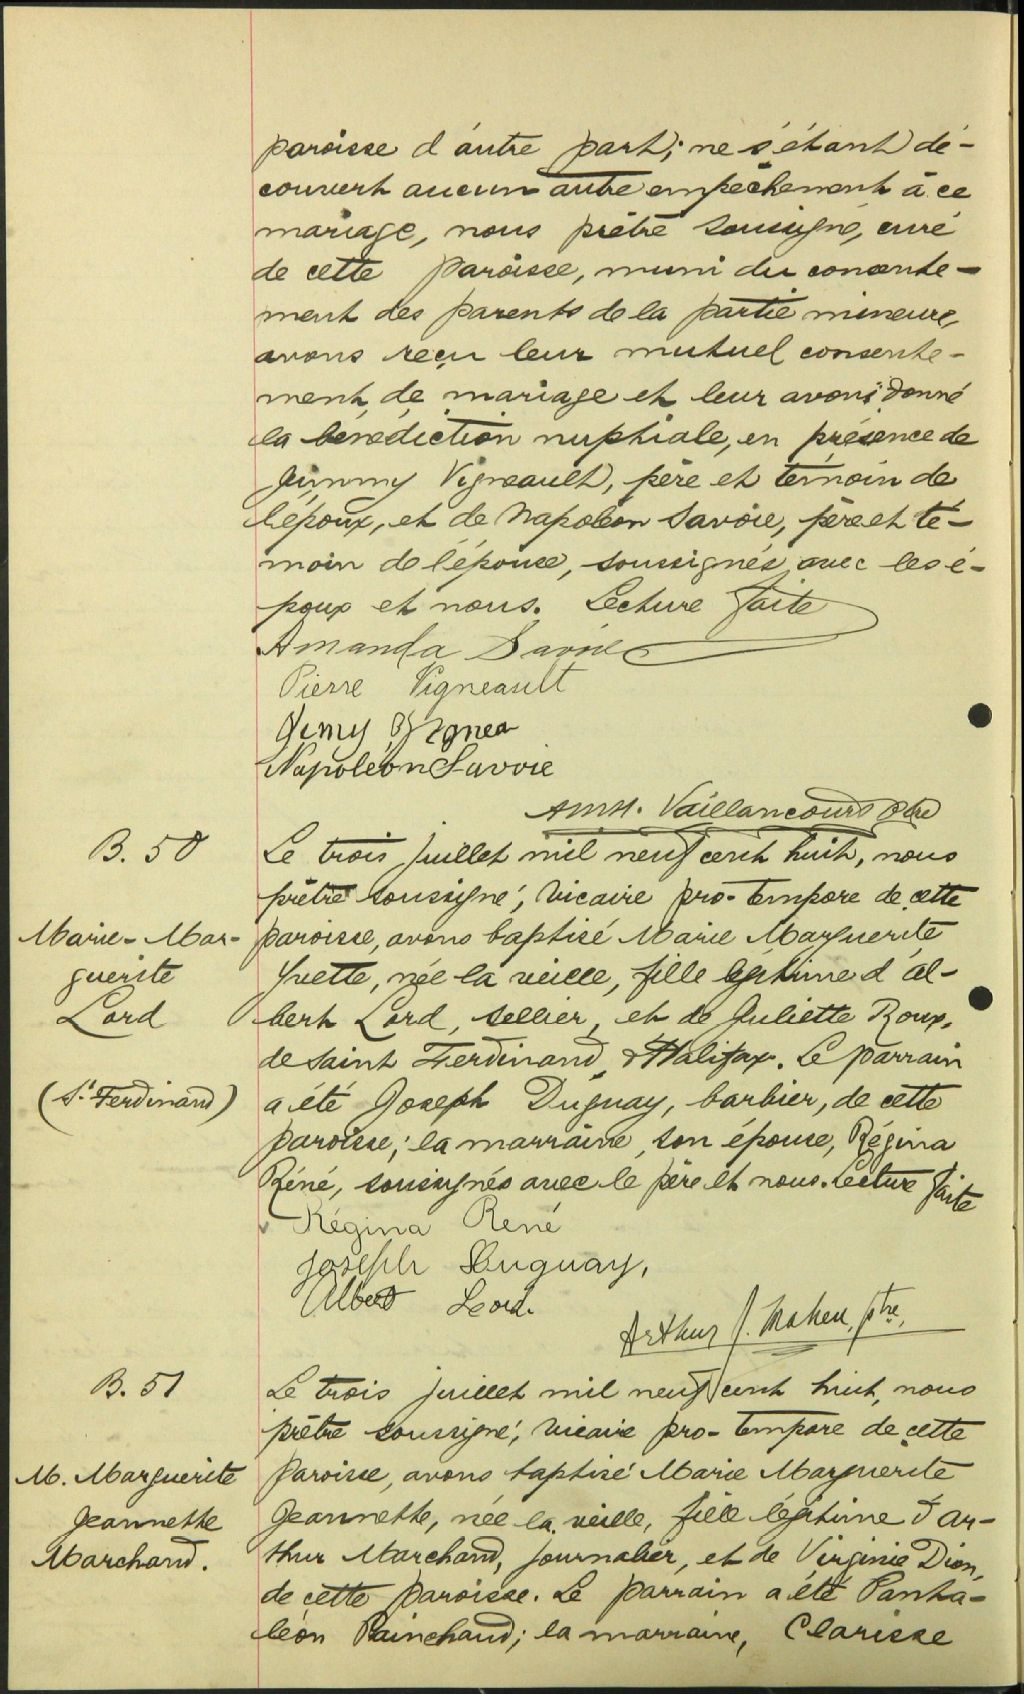 paroisse d'autre part; ne s'étant dé-
couvert aucun autre empêchement à ce
mariage, nous prêtre soussigné, curé
de cette paroisse, muni du consente-
ment des parents de la partie mineure,
avons reçu leur mutuel consente-
ment de mariage et leur avons donné
la bénédiction nuptiale, en présence de
Jimmy Vigneault, père et témoin de
l'époux, et de Napoléon Savoie, père et té-
moin de l'épouse, soussignés avec les é-
poux et nous. Lecture faite
Amanda Savoie
Pierre Vigneault
Napoléon Savoie
Vaillancourt Ptre
B. 50
Marie-Mar-
guerite
Lord
(St Ferdinand)
Le trois juillet mil neuf cent huit, nous
prêtre soussigné, vicaire pro-tempore de cette
paroisse, avons baptisé Marie Marguerite
Yvette, née la veille, fille légitime d'Al-
bert Lord, sellier, et de Juliette Roux,
de Saint Ferdinand d'Halifax. Le parrain
a été Joseph Duguay, barbier, de cette
paroisse; la marraine, son épouse, Régina
Réné, soussignés avec le père et nous. Lecture faite
Régina René
Joseph Duguay,
Albert Lord.
Arthur J. Maheu, ptre,
B. 51
M. Marguerite
Jeannette
Marchand.
Le trois juillet mil neuf cent huit, nous
prêtre soussigné, vicaire pro-tempore de cette
paroisse, avons baptisé Marie Marguerite
Jeannette, née la veille, fille légitime d'Ar-
thur Marchand, journalier, et de Virginie Dion,
de cette paroisse. Le parrain a été Panta-
léon Painchaud; la marraine, Clarisse